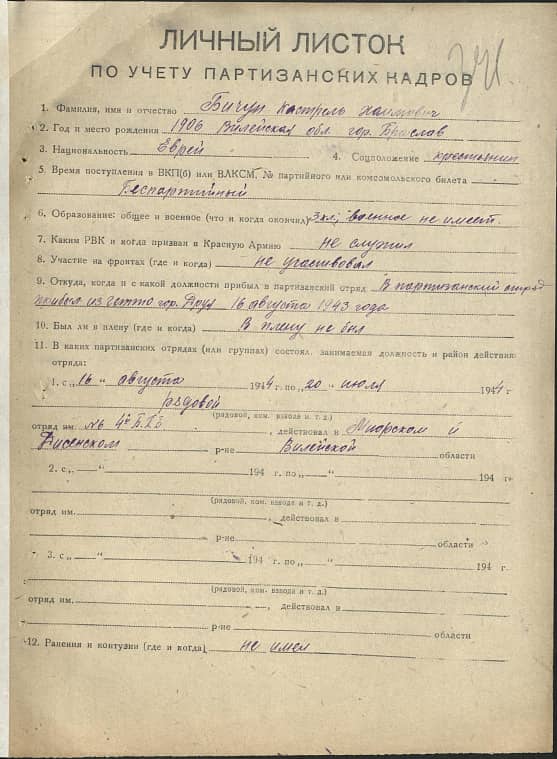 ЛИЧНЫЙ ЛИСТОК
ПО УЧЕТУ ПАРТИЗАНСКИХ КАДРОВ
1. Фамилия, имя и отчество Бичун Кастрель Хаимович
2. Год и место рождения 1906 Вилейская обл. гор. Браслав
3. Национальность Еврей 4. Соцположение крестьянин
5. Время поступления в ВКП(б) или ВЛКСМ, № партийного или комсомольского билета
Беспартийный
6. Образование: общее и военное (что и когда окончил) 3 кл; военное не имеет.
7. Каким РВК и когда призван в Красную Армию не служил
8. Участие на фронтах (где и когда) не участвовал
9. Откуда, когда и с какой должности прибыл в партизанский отряд В партизанский отряд
прибыл из гетто гор. Друя 16 августа 1943 года
10. Был ли в плену (где и когда) В плену не был
11. В каких партизанских отрядах (или группах) состоял, занимаемая должность и район действия
отряда:
1. с „16" августа 1944 г. по „20" июля 1944 г
Ездовой
(рядовой, ком. взвода и т. д.)
отряд им. №6 4й Б.П.Б , действовал в Миорском и
Дисенском р-не Вилейской области
2. с „—" 194 г. по „—" 194 г
(рядовой, ком. взвода и т. д.)
отряд им. , действовал в
р-не области
3. с „—" 194 г. по „—" 194 г.
(рядовой, ком. взвода и т. д.)
отряд им. , действовал в
р-не области
12. Ранения и контузии (где и когда) не имел